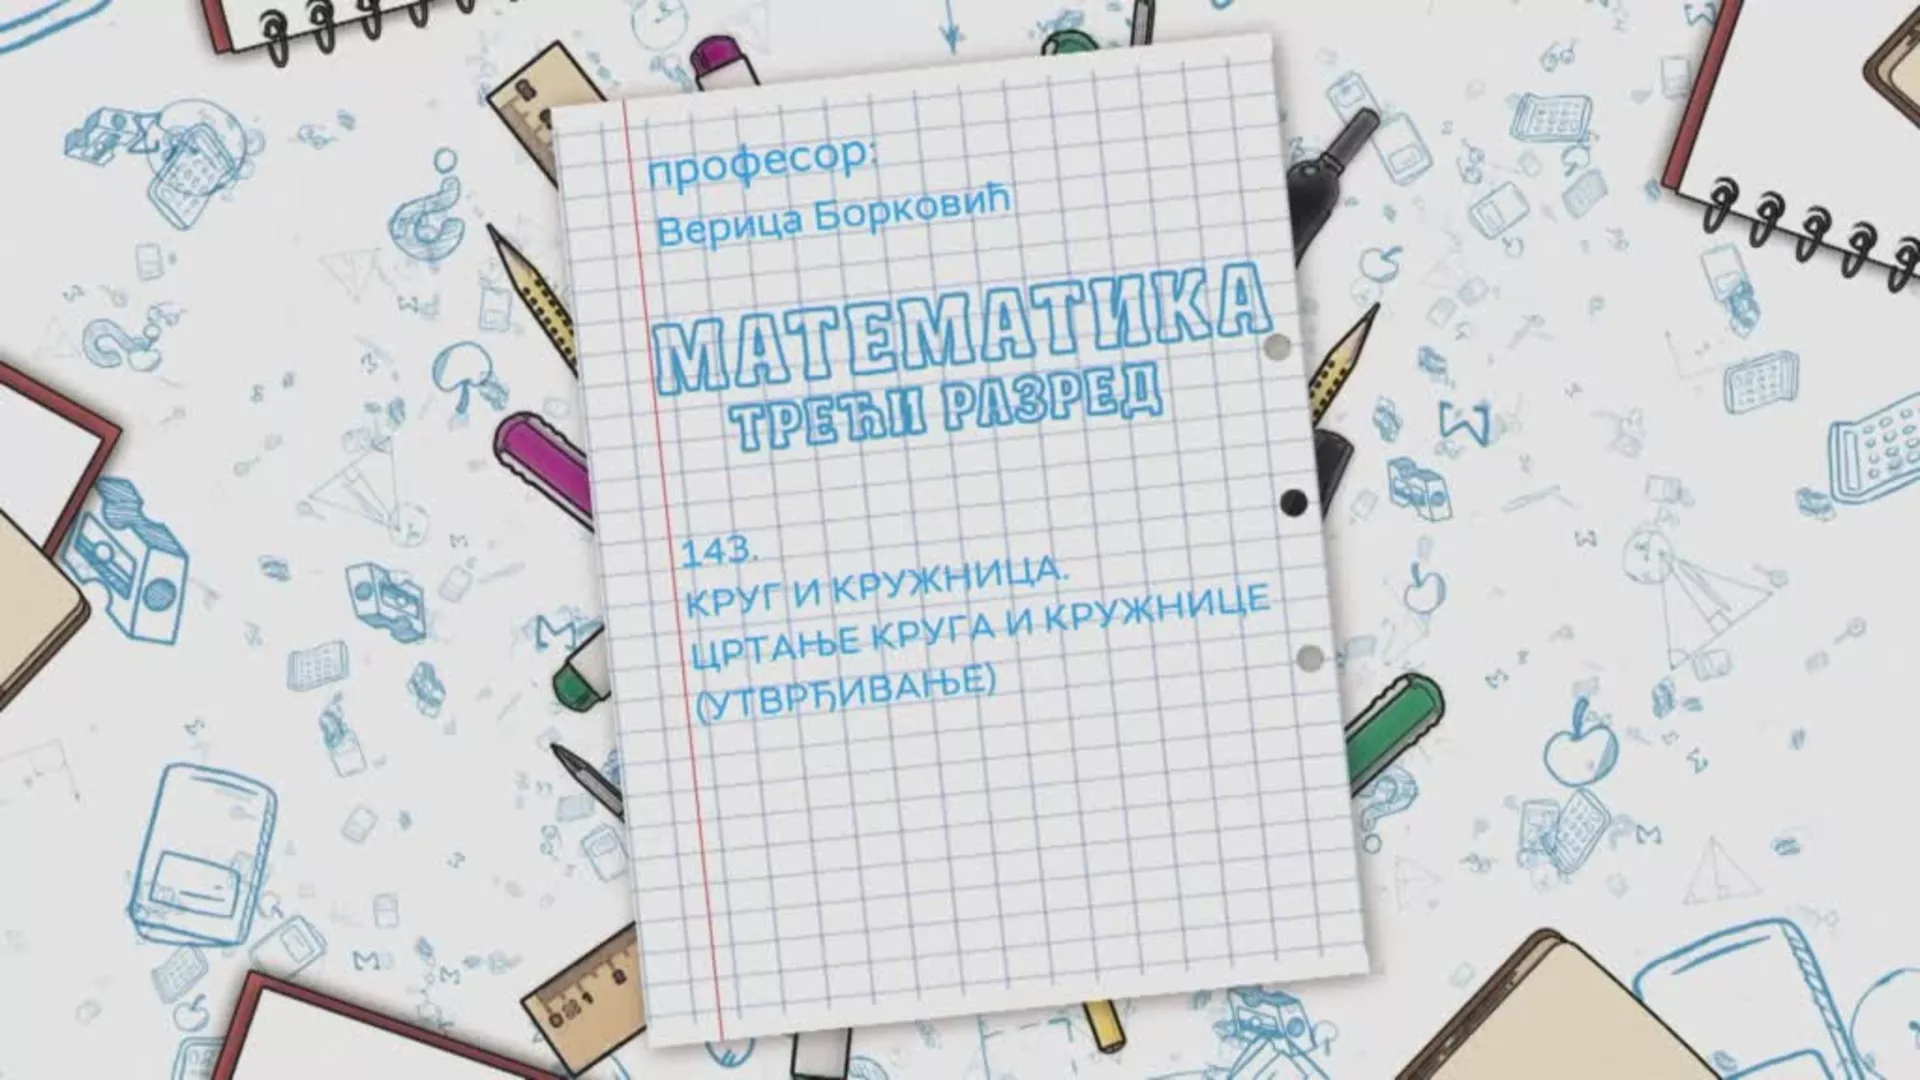 професор:
Верица Борковић
МАТЕМАТИКА
ТРЕЋИ РАЗРЕД
143.
КРУГ И КРУЖНИЦА.
ЦРТАЊЕ КРУГА И КРУЖНИЦЕ
(УТВРЂИВАЊЕ)